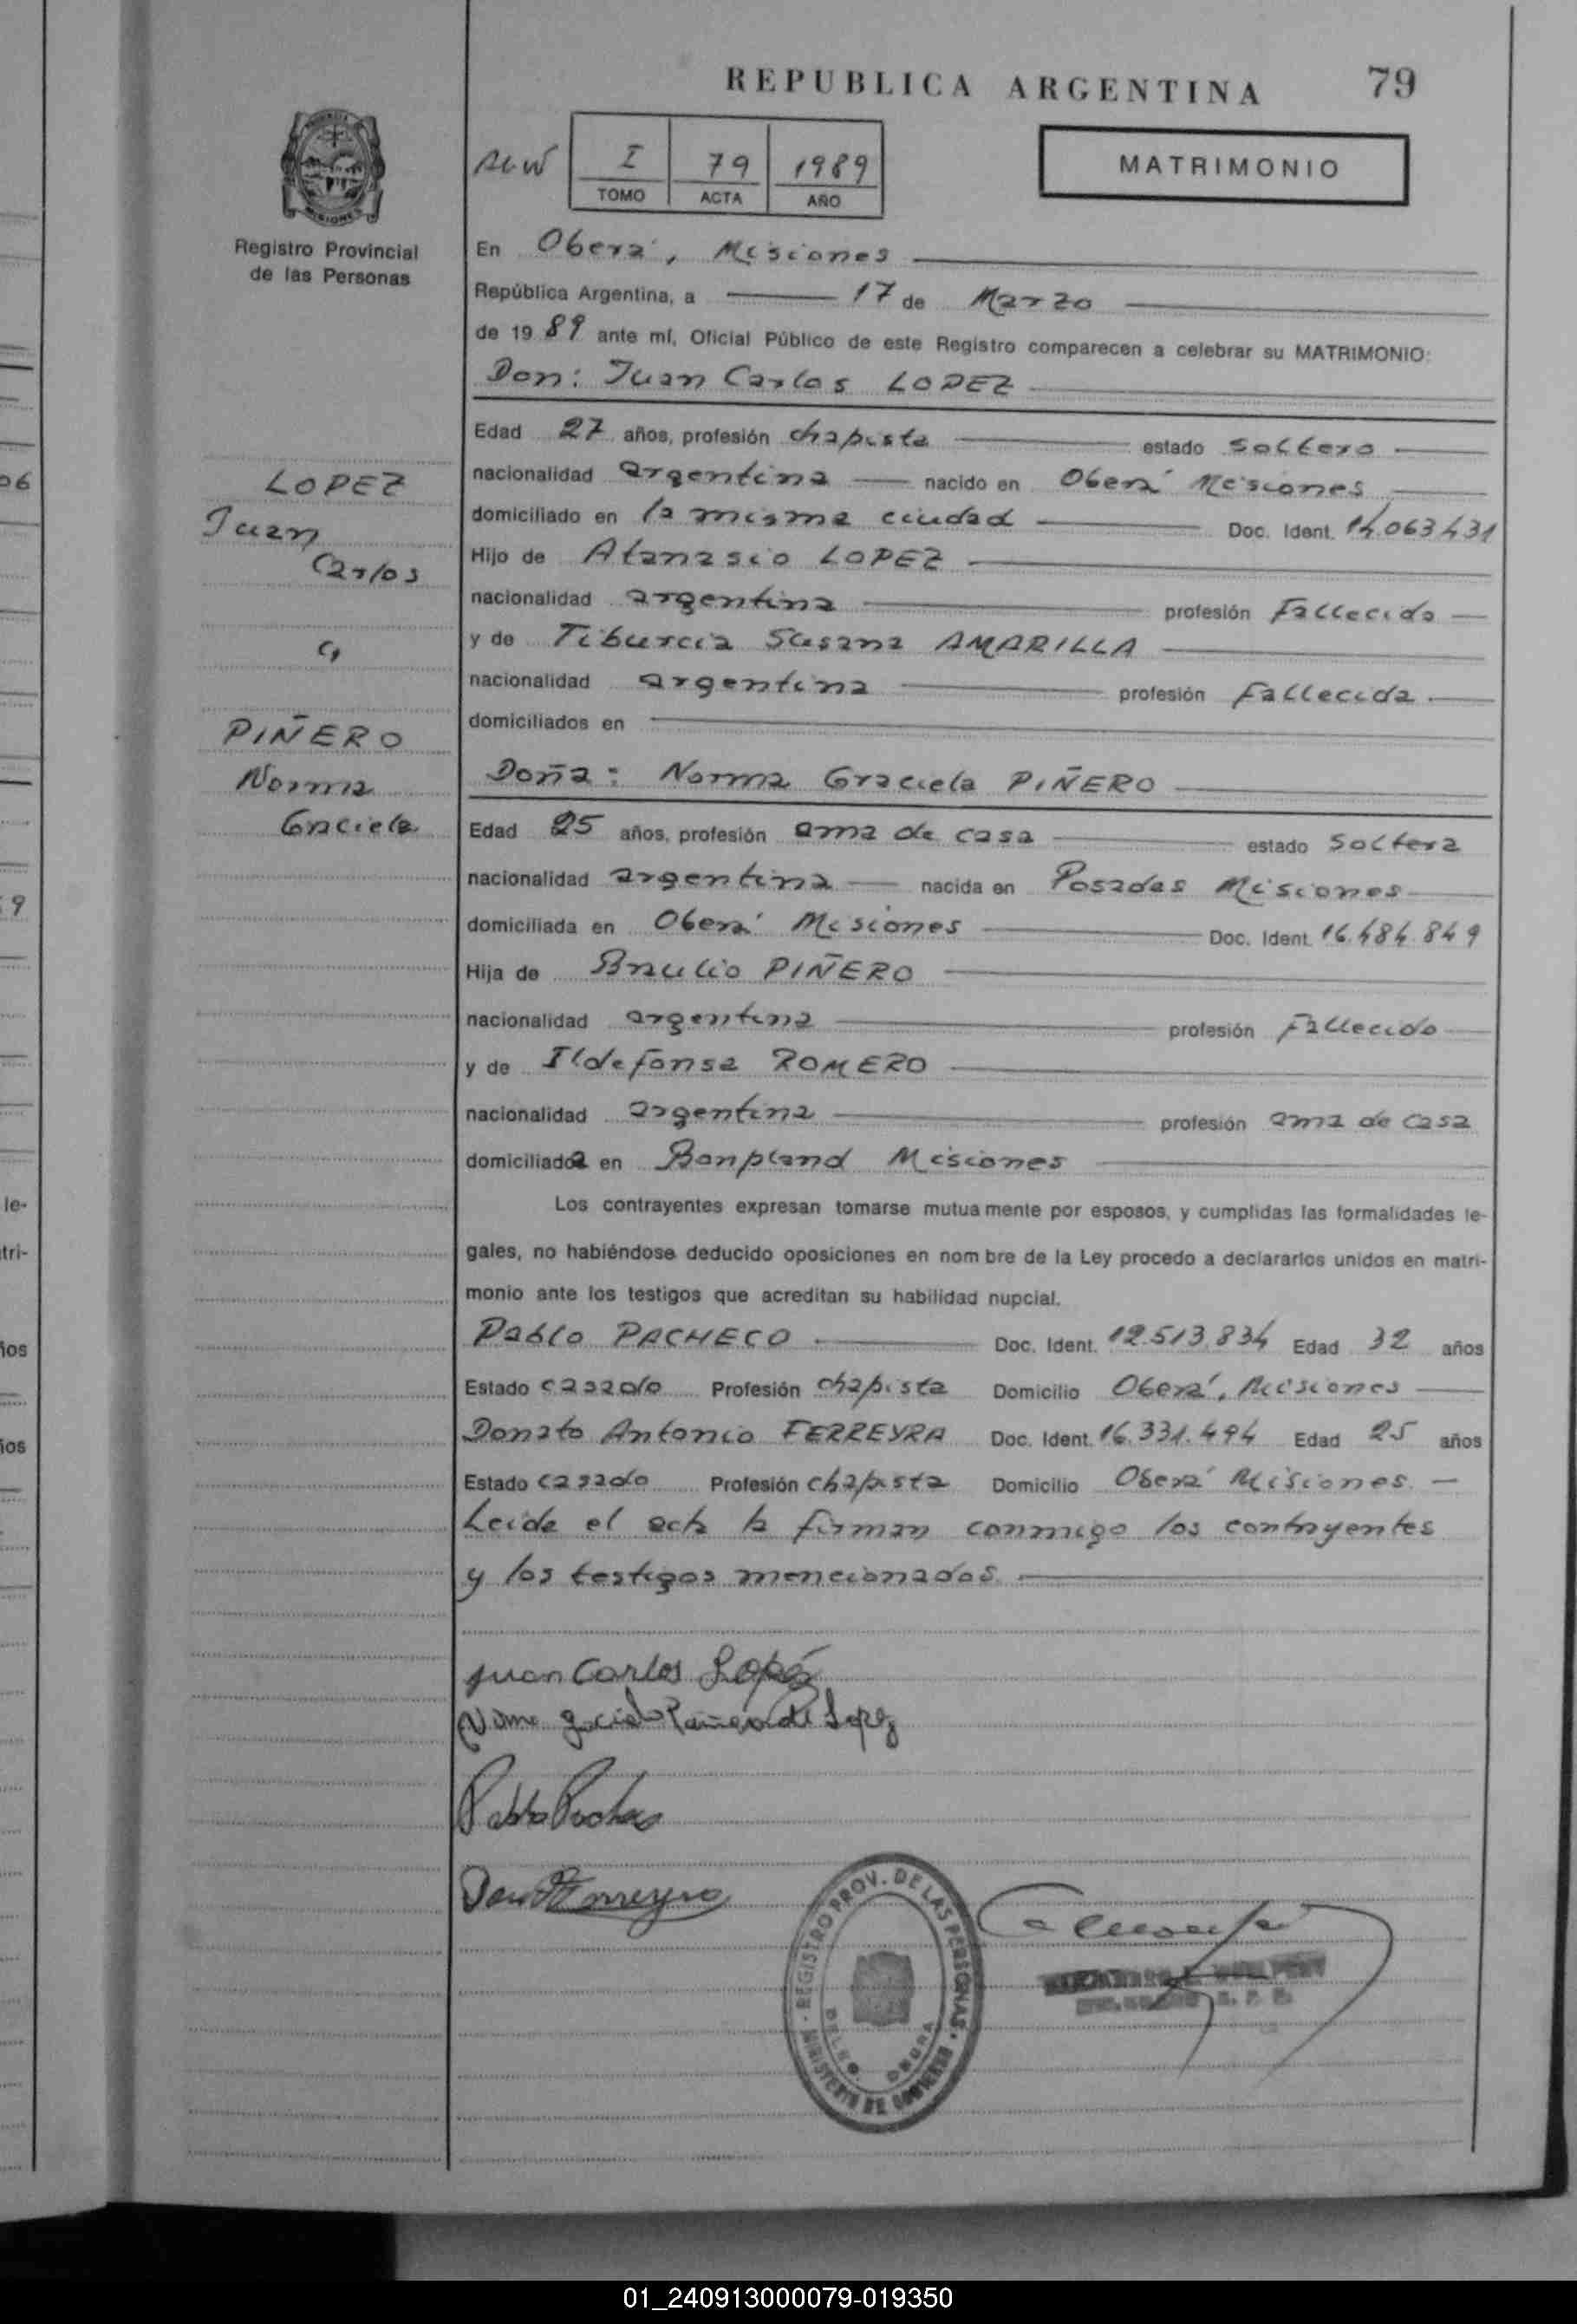 REPUBLICA ARGENTINA 79
I 79 1989
TOMO ACTA AÑO
MATRIMONIO
Registro Provincial
de las Personas
En Oberá, Misiones
República Argentina, a 17 de Marzo
de 19 89 ante mí, Oficial Público de este Registro comparecen a celebrar su MATRIMONIO:
Don: Juan Carlos LOPEZ
Edad 27 años, profesión chapista estado soltero
nacionalidad argentina nacido en Oberá Misiones
domiciliado en la misma ciudad Doc. Ident. 14.063431
Hijo de Atanasio LOPEZ
nacionalidad argentina profesión Fallecido
y de Tiburcia Susana AMARILLA
nacionalidad argentina profesión Fallecida
domiciliados en
LOPEZ
Juan
Carlos
c/
PIÑERO
Norma
Graciela
Doña: Norma Graciela PIÑERO
Edad 25 años, profesión ama de casa estado soltera
nacionalidad argentina nacida en Posadas Misiones
domiciliada en Oberá Misiones Doc. Ident. 16.484.849
Hija de Braulio PIÑERO
nacionalidad argentina profesión Fallecido
y de Ildefonsa ROMERO
nacionalidad argentina profesión ama de casa
domiciliada en Bonpland Misiones
Los contrayentes expresan tomarse mutua mente por esposos, y cumplidas las formalidades le-
gales, no habiéndose deducido oposiciones en nom bre de la Ley procedo a declararlos unidos en matri-
monio ante los testigos que acreditan su habilidad nupcial.
Pablo PACHECO Doc. Ident. 12.513.834 Edad 32 años
Estado casado Profesión chapista Domicilio Oberá, Misiones
Donato Antonio FERREYRA Doc. Ident. 16.331.494 Edad 25 años
Estado casado Profesión chapista Domicilio Oberá Misiones.
Leida el acta la firman conmigo los contrayentes
y los testigos mencionados.
Juan Carlos Lopéz
Norma Graciela Piñero de Lopez
Pablo Pacheco
REGISTRO PROV. DE LAS PERSONAS
MINISTERIO DE GOBIERNO
01_240913000079-019350